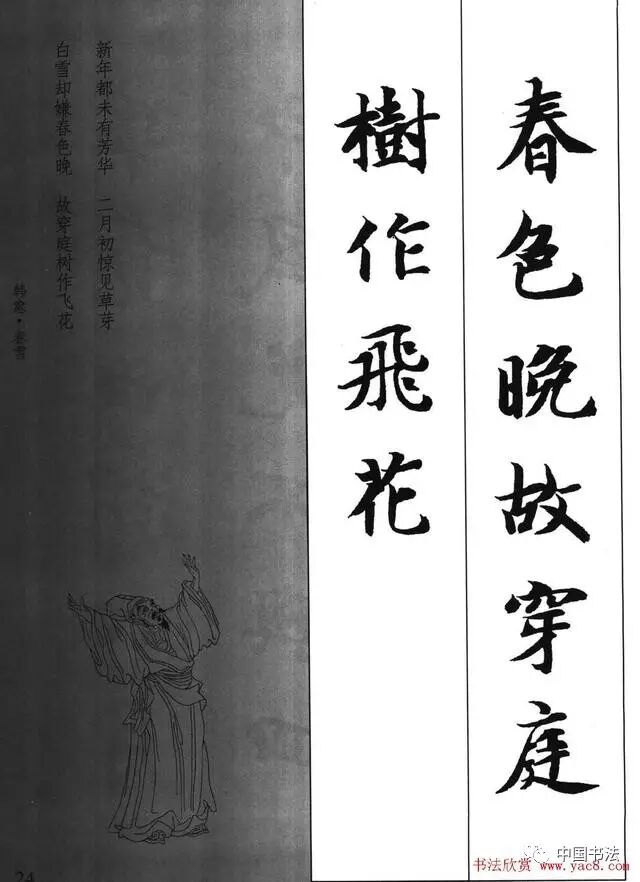 春色晚故穿庭
樹作飛花
新年都未有芳华 二月初惊见草芽
白雪却嫌春色晚 故穿庭树作飞花
韩愈·春雪
24
中国书法
书法欣赏 www.yac8.com